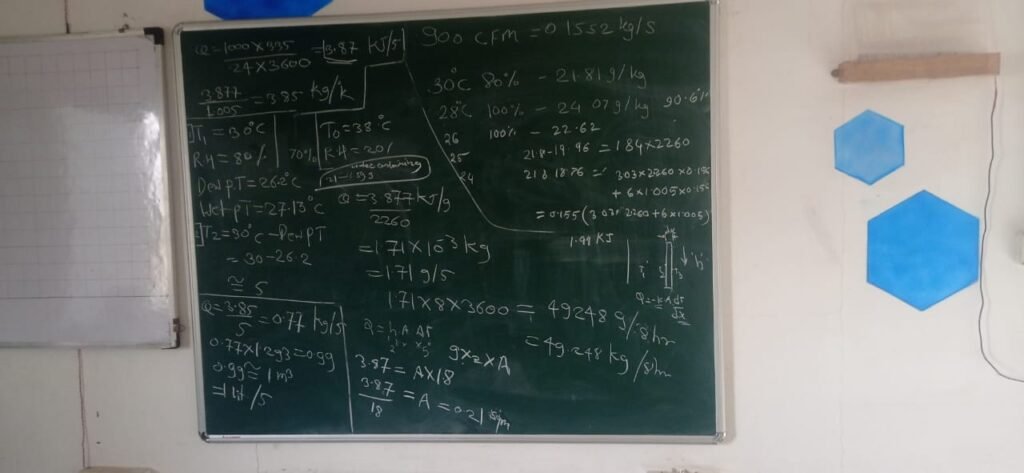 Q = 1000 × 335 / 24 × 3600 = 3.87 KJ/s
3.877 / 1.005 = 3.85 kg/k
T₁ = 30°C
RH = 80%
70%
DewpT = 26.2°C
WetpT = 27.13°C
T₂ = 30°C - DewPT
= 30 - 26.2
≅ 5
T₀ = 38°C
RH = 20%
Q = 3.877 KJ/g / 2260
= 1.71 × 10⁻³ kg
= 1.71 g/s
1.71 × 8 × 3600 = 49248 g/8hr
= 49.248 kg/8hr
Q = 3.85 / 5 = 0.77 kg/s
0.77 × 1.293 = 0.99
0.99 ≅ 1 m³
= 1 lit/s
Q = h A ΔT
9 × 2 × A
3.87 = A × 18
3.87 / 18 = A = 0.21
900 CFM = 0.1552 kg/s
30°C 80% - 21.81 g/kg
28°C 100% - 24.07 g/kg 90.6%
26 100% - 22.62
25
24
21.8 - 19.96 = 1.84 × 2260
21.8 18.76 = 303 × 2260 × 0.155
+ 6 × 1.005 × 0.155
= 0.155 (3.03 × 2260 + 6 × 1.005)
1.99 KJ
Q = -kA dT / dx